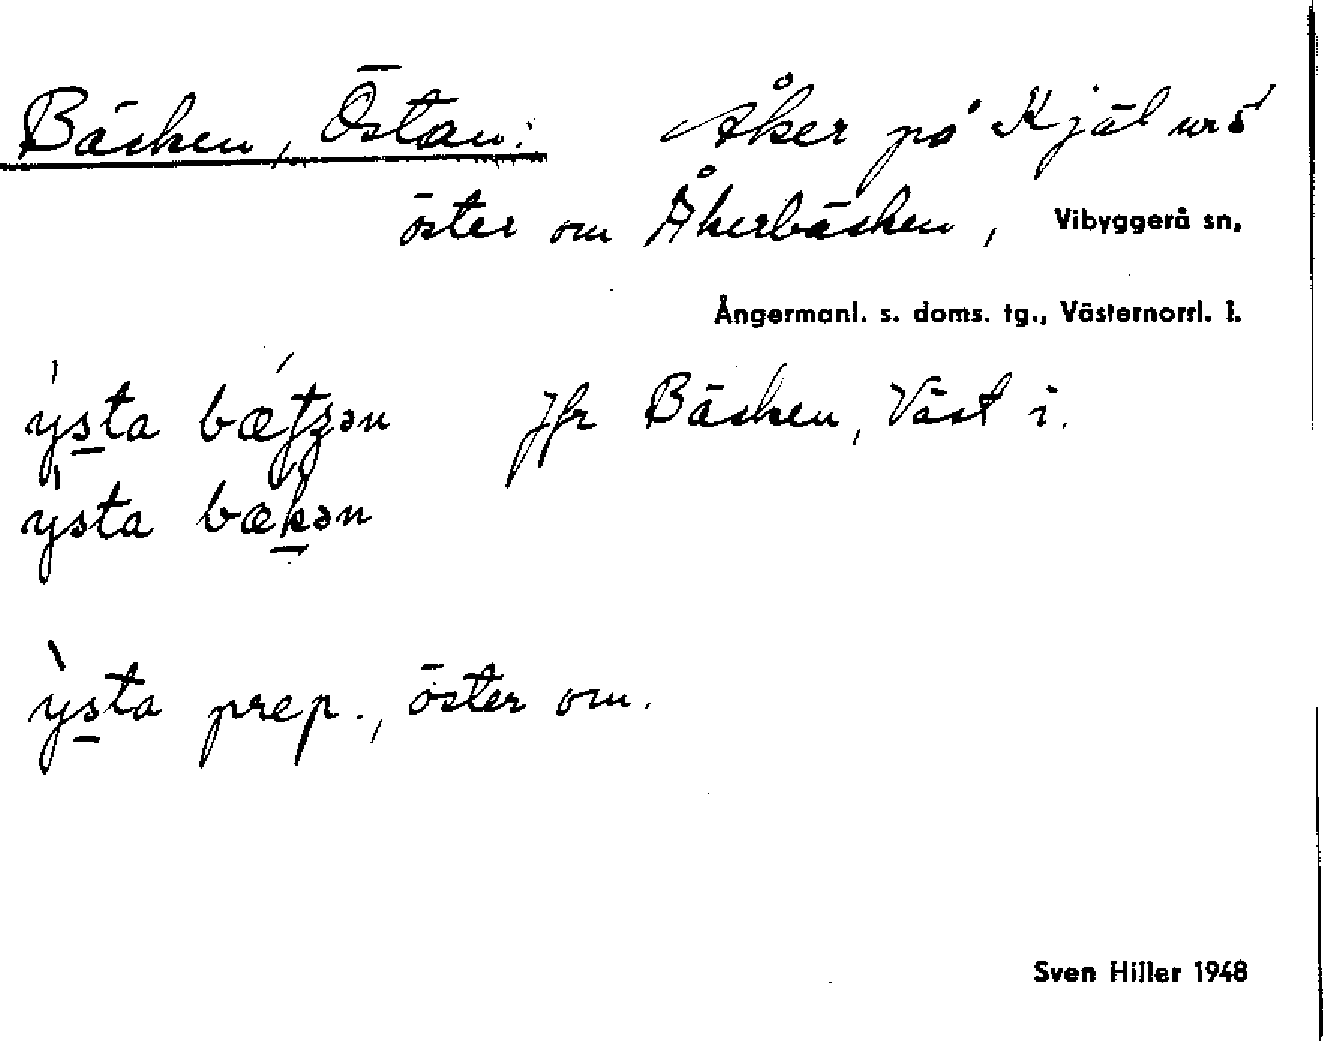 Bäcken, Östan: Åker på Kjäl nr 5
öster om Åkerbäcken, Vibyggerå sn,
Ångermanl. s. doms. tg., Västernorrl. l.
ysta bæƫʒən Jfr Bäcken, Väst i.
ysta bækən
ysta prep., öster om.
Sven Hiller 1948